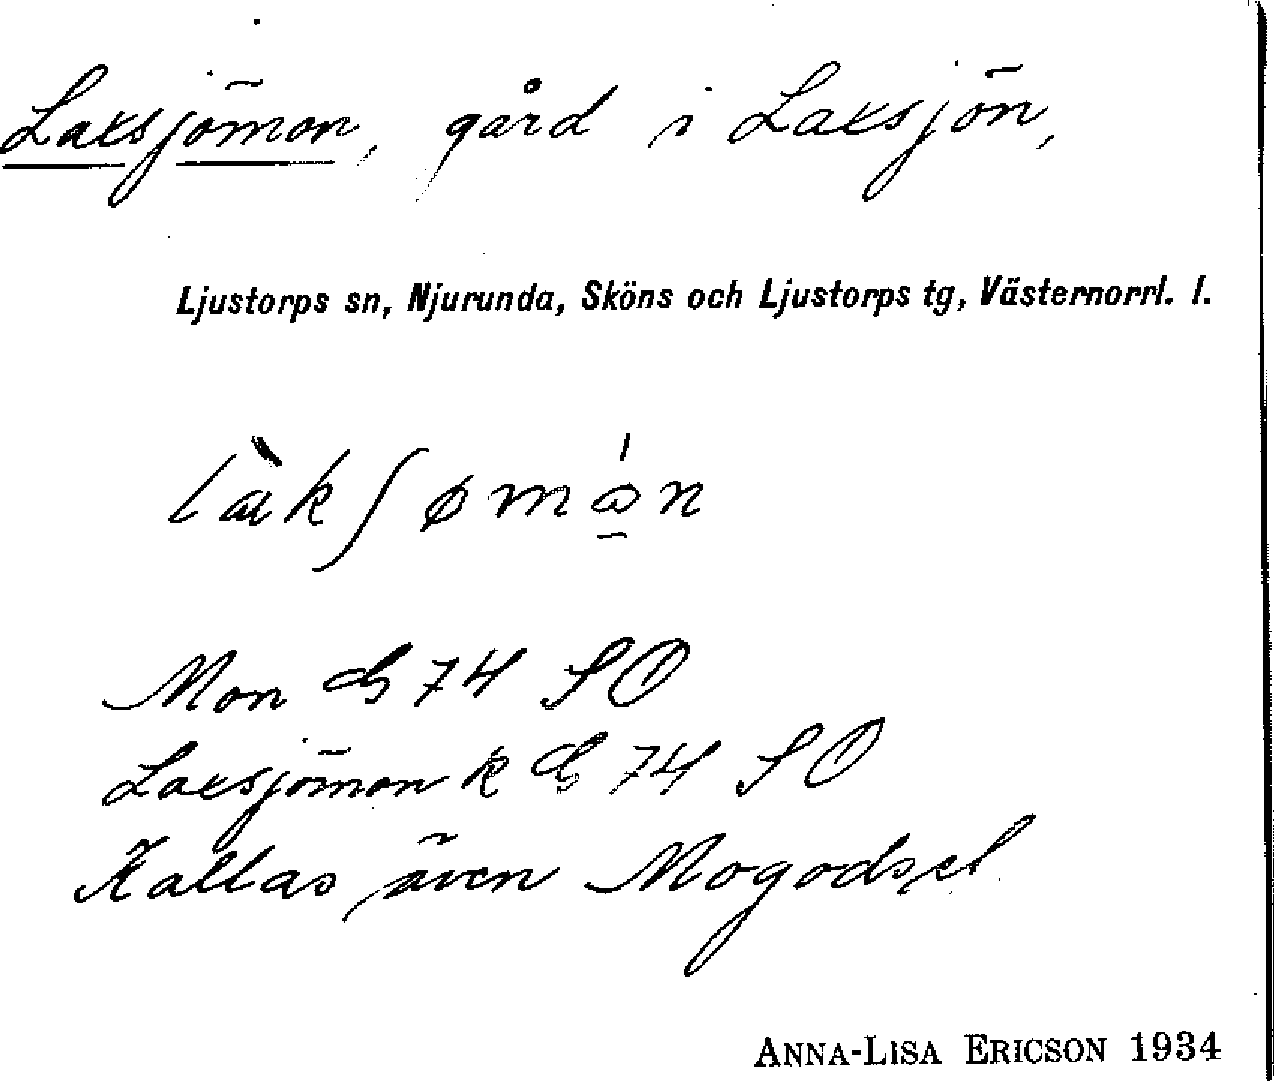 Laxsjömon, gård i Laxsjön,
Ljustorps sn, Njurunda, Sköns och Ljustorps tg, Västernorrl. l.
Mon G 74 SO
Laxsjömon k G 74 SO
Kallas även Mogodset
ANNA-LISA ERICSON 1934